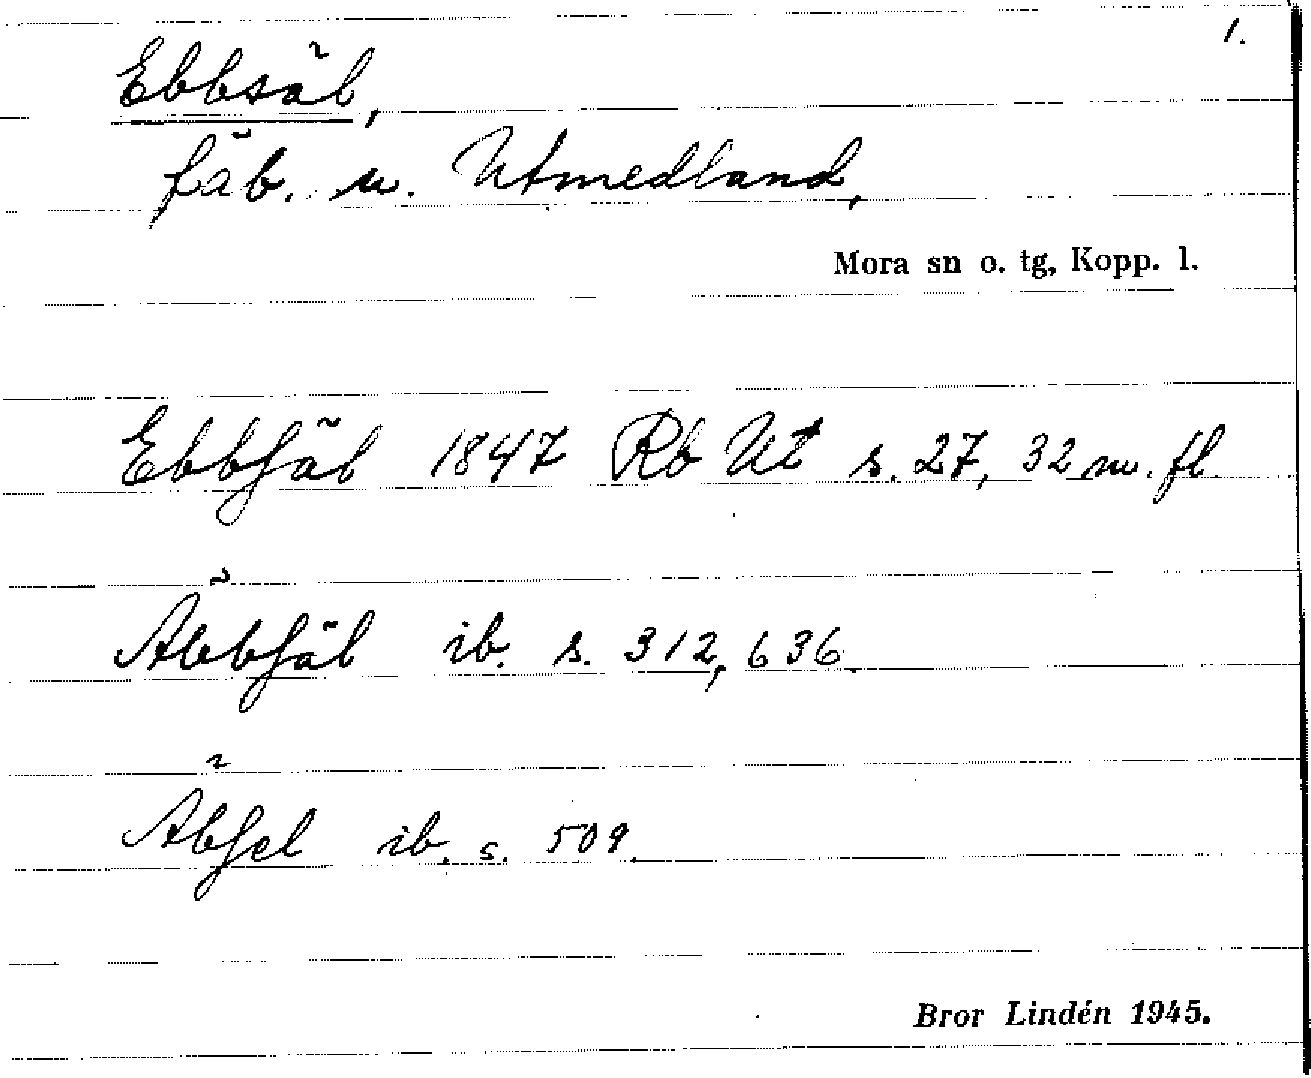 1.
Ebbsäl,
fäb. u. Utmedland,
Mora sn o. tg, Kopp. l.
Ebbſäl 1847 Rb Ut s. 27, 32 m. fl.
Äbbſäl ib. s. 312, 636.
Äbſel ib. s. 509.
Bror Lindén 1945.